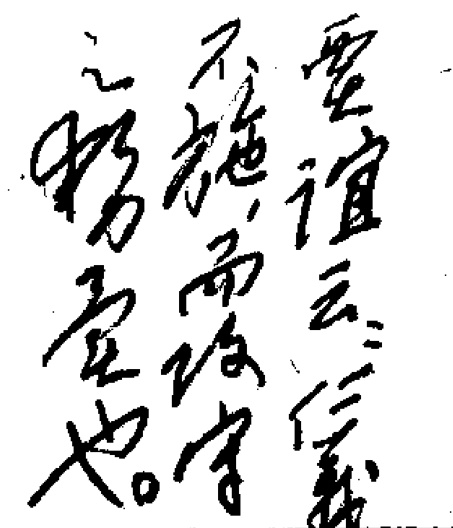 贾谊云：仁義
不施，而攻守
之势異也。